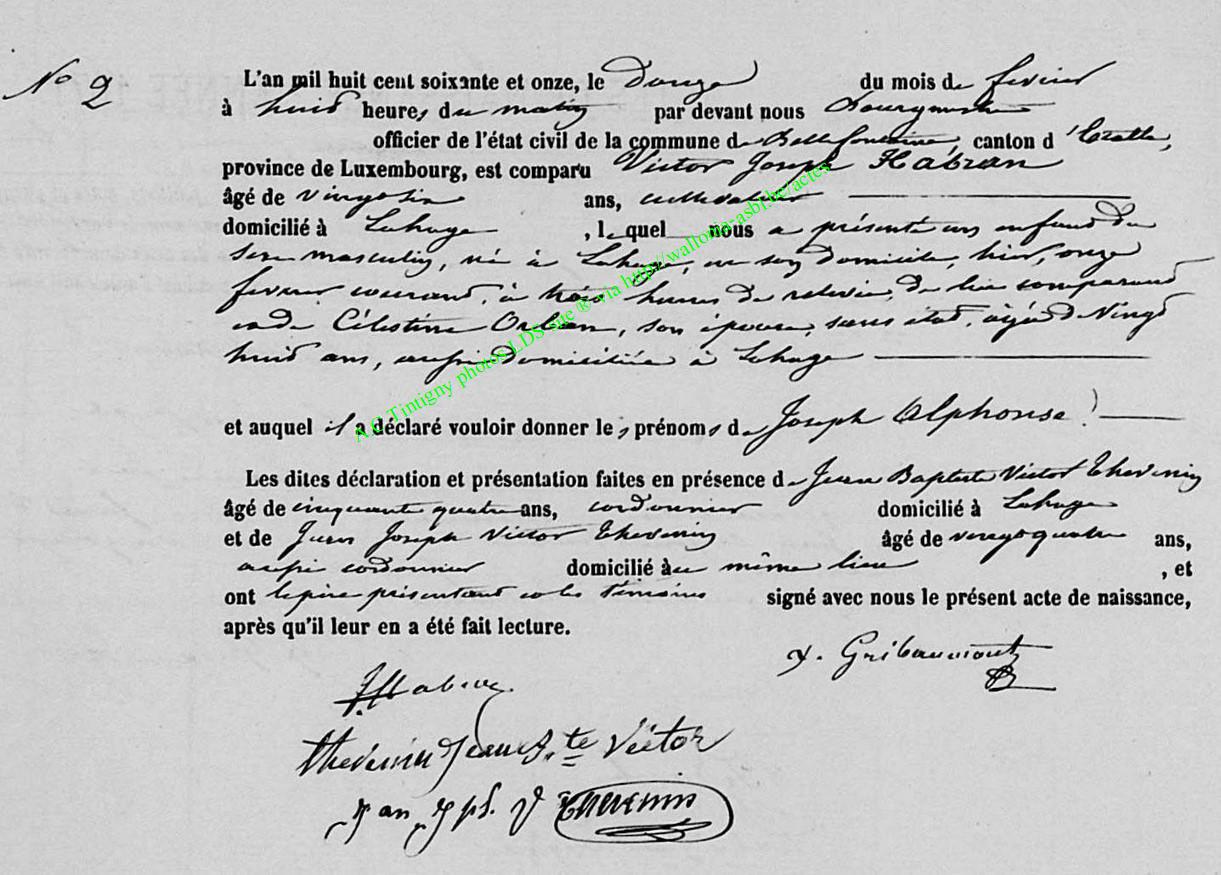 N° 2
L'an mil huit cent soixante et onze, le Douze du mois de fevrier
à huit heures du matin par devant nous Bourgmestre
officier de l'état civil de la commune de Bellefontaine, canton d'Etalle,
province de Luxembourg, est comparu Victor Joseph Habran
âgé de vingt six ans, cultivateur
domicilié à Lahage, lequel nous a présenté un enfant du
sexe masculin, né à Lahage, en son domicile, hier, onze
fevrier courant, à trois heures de relevée, de lui comparant
et de Célestine Orban, son épouse, sans état, âgée de Vingt
huit ans, aussi domiciliée à Lahage
et auquel il a déclaré vouloir donner les prénoms de Joseph Alphonse
Les dites déclaration et présentation faites en présence de Jean Baptiste Victor Thevenin
âgé de cinquante quatre ans, cordonnier domicilié à Lahage
et de Jean Joseph Victor Thevenin âgé de vingt quatre ans,
aussi cordonnier domicilié à ce même lieu, et
ont le père présentant et les témoins signé avec nous le présent acte de naissance,
après qu'il leur en a été fait lecture.
Gribaumont
Habran
thevenin Jean B.te Victor
jean jph. V Thevenin
A.C Tintigny photos LDS site ® via http://wallonia-asbl.be/actes